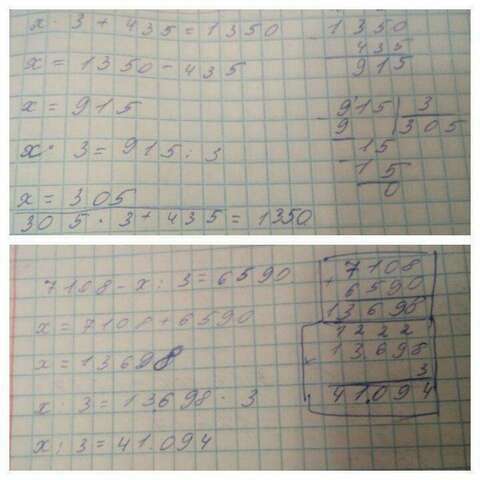 x · 3 + 435 = 1350
x = 1350 - 435
x = 915
x · 3 = 915 : 3
x = 305
305 · 3 + 435 = 1350
- 1350
435
915
- 915 | 3
9 | 305
- 15
15
0
7108 - x : 3 = 6590
x = 7108 + 6590
x = 13698
x · 3 = 13698 · 3
x : 3 = 41.094
+ 7108
6590
13698
1222
× 13698
3
41.094